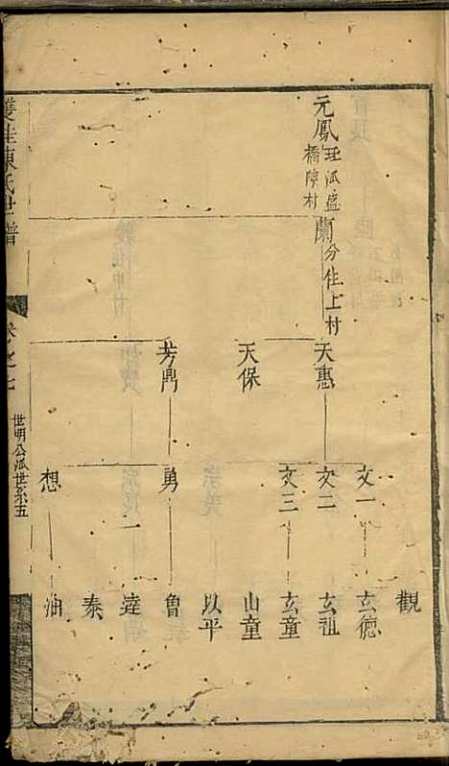 元鳳
珏派盛
橋陳村
蘭
分住上村
天惠
天保
芳鼎
文一
文二
文三
勇
想
觀
玄德
玄祖
玄童
山童
以平
魯
達
泰
油
陳氏世譜
卷之七
世明公派世系五